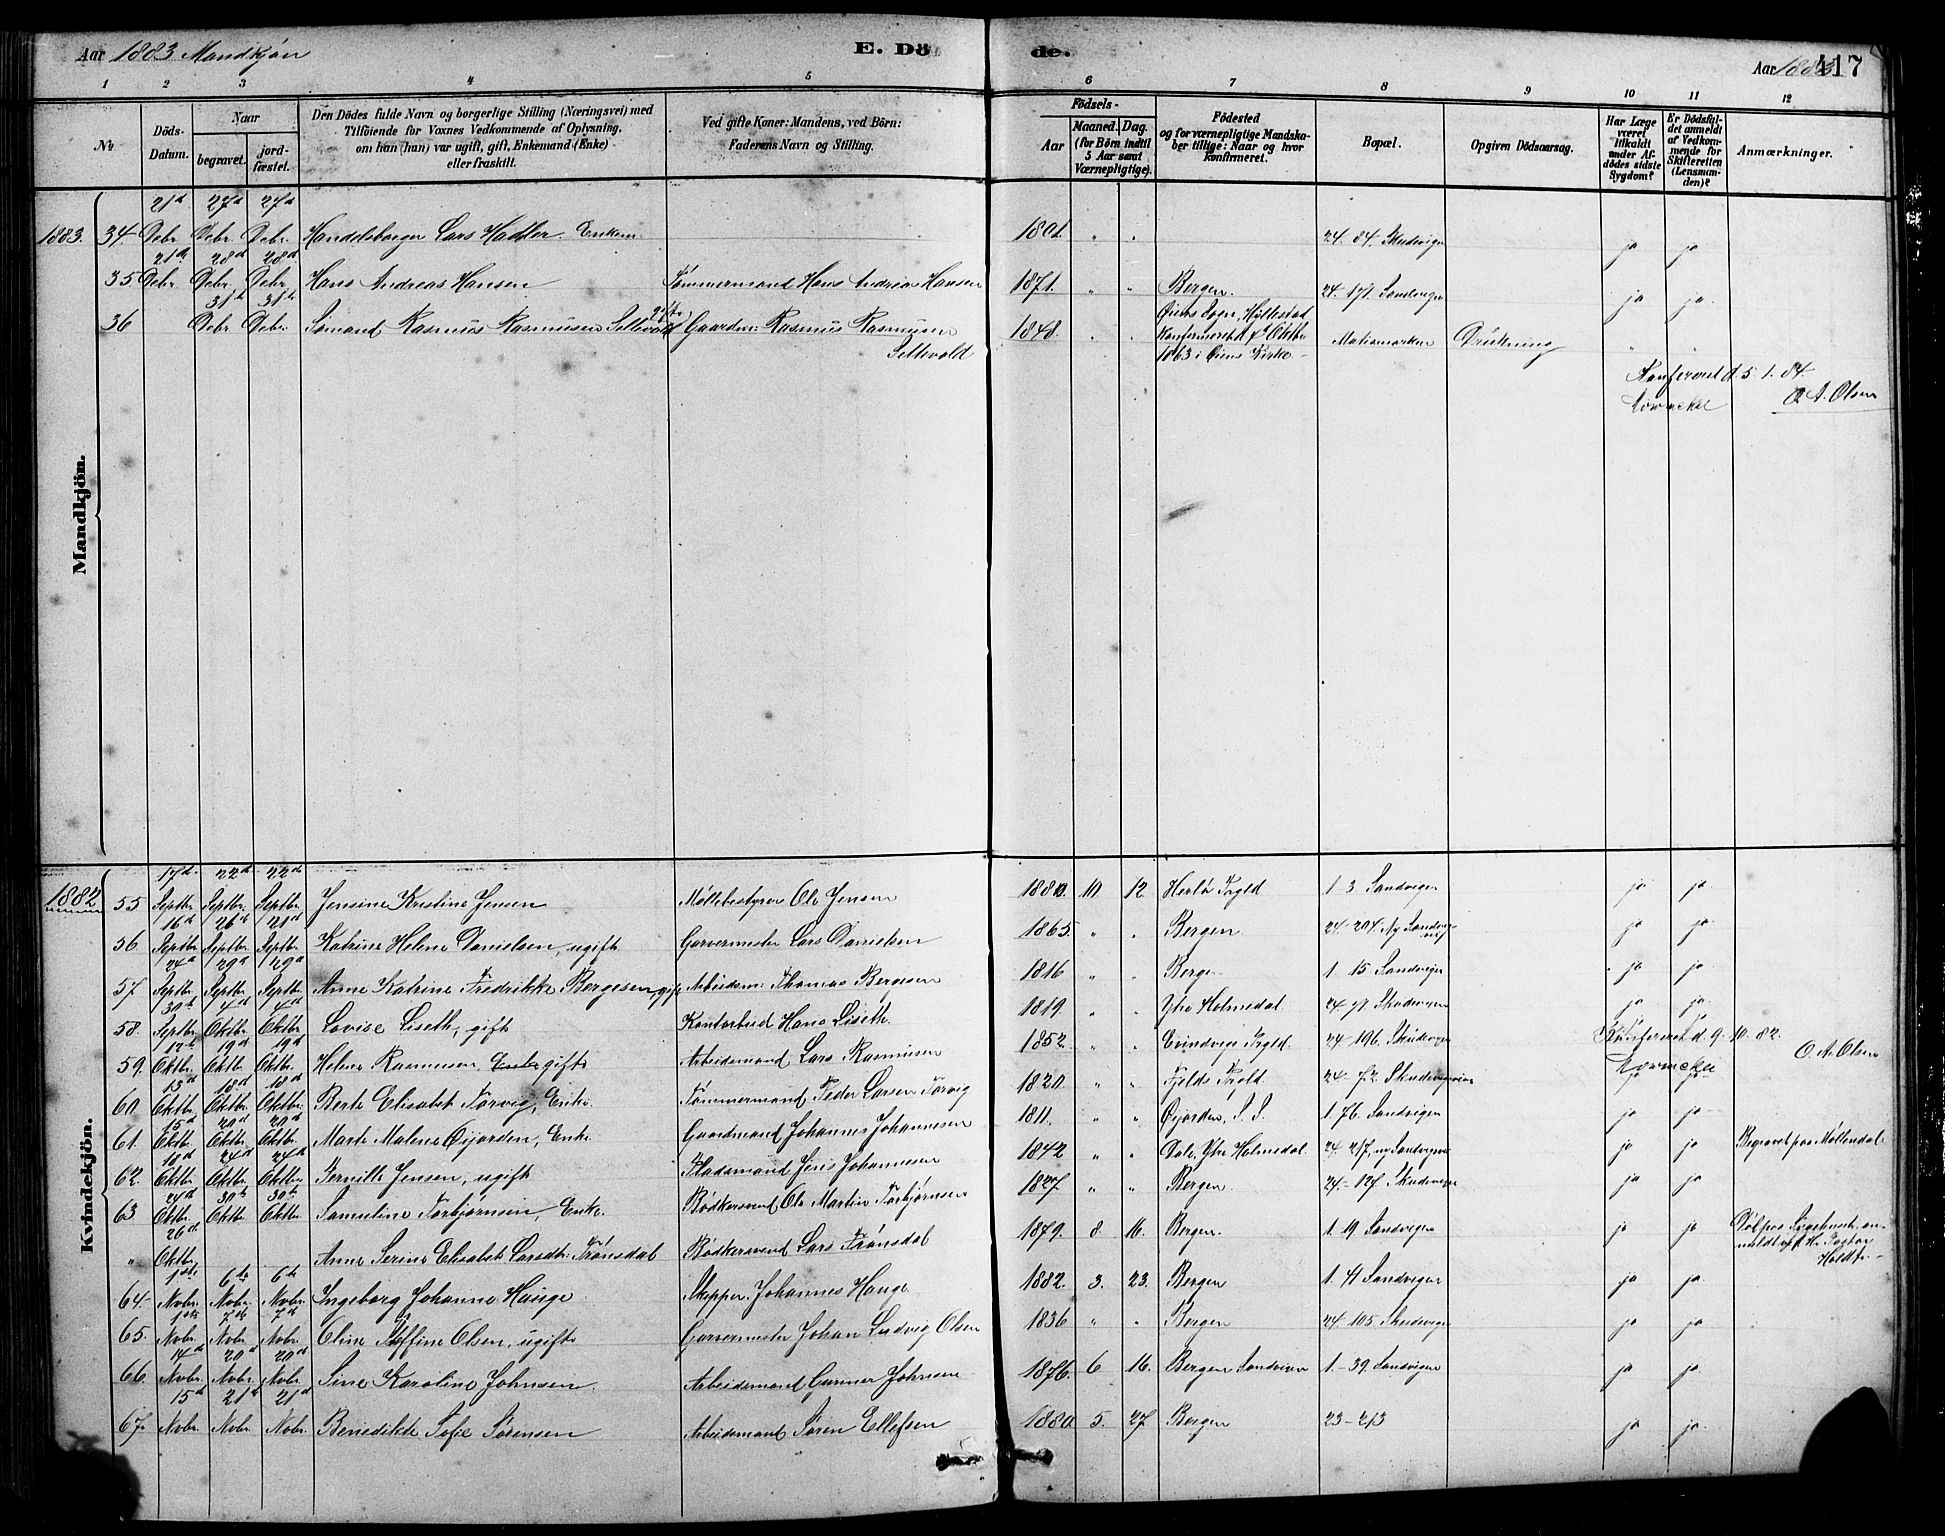 Aar 1883 Mandkjön
E. Döde.
Aar 1883
417
1 2 3 4 5 6 7 8 9 10 11 12
№
Döds-Datum.
Naar
begravet.
jordfæstet.
Den Dödes fulde Navn og borgerlige Stilling (Næringsvei) med
Tilföiende for Voxnes Vedkommende af Oplysning.
om han (hun) var ugift, gift, Enkemand (Enke)
eller fraskilt.
Ved gifte Koner: Mandens, ved Börn:
Faderens Navn og Stilling.
Födsels-
Aar
Maaned. Dag.
(for Börn indtil
5 Aar samt
Værnepligtige).
Födested
og for værnepligtige Mandska-
ber tillige: Naar og hvor
konfirmeret.
Bopæl.
Opgiven Dödsaarsag.
Har Læge
været
tilkaldt
under Af-
dödes sidste
Sygdom?
Er Dödsfal-
det anmeldt
af Vedkom-
mende for
Skifteretten
(Lensman-
den)?
Anmærkninger.
Mandkjön.
1883. 34 21d Debr. 27d Debr. 27d Debr. Handelsborger Lars Hadler. Enkem. 1801. " " 24. 84. Skudevigen ja ja
35 21d Debr. 28d Debr. 28d Debr. Hans Andreas Hansen Tömmermand Hans Andreas Hansen 1871. " " Bergen. 24. 171. Sandvigen ja ja
36 31te Debr. 31te Debr. Sömand Rasmus Rasmusen Settevold gift Gaardm: Rasmus Rasmusen Settevold 1848. " " Öiens Sogn, Hollestad Konfirmeret d. Oktbr 1863 i Öiens Kirke Mariamarken Drukning " "
Konfereret d. 5. 1. 84.
O. A. Olsen
Kvindekjön.
1882 55 17d Septbr. 22d Septbr. 22d Septbr. Jensine Kristine Jensen Möllebestyrer Ole Jensen 1880. 10 12. Herlö Prgld 1. 3 Sandvigen ja ja
56. 16d Septbr. 26d Septbr. 21d Septbr. Katrine Helene Danielsen, ugift Garvermester Lars Danielsen 1865. " " Bergen 24-204. Ny Sandvigsvei ja ja
57. 24d Septbr. 29d Septbr. 29d Septbr. Anne Katrine Fredrikke Bergesen, gift Arbeidsm: Thomas Bergesen 1816 " " Bergen 1. 15 Sandvigen ja ja
58. 30te Septbr. 4d Oktbr. 4d Oktbr. Lovise Liseth, gift Kontorbud Hans Liseth. 1819. " " Ytre Holmedal. 24. 91. Skudevigen ja ja
Konfereret d. 9. 10. 82.
O. A. Olsen
59. 12te Oktbr. 19d Oktbr. 19d Oktbr. Helene Rasmusen, Enke gift Arbeidsmand Lars Rasmusen 1852. " " Evindvigs Prgld. 24-196. Skudevigen
60 13d Oktbr. 18d Oktbr. 18d Oktbr. Berte Elisabet Torvig, Enke. Tömmermand Peder Larsen Torvig 1820. " " Fjelds Prgld. 24-72. Skudevigsveien ja ja
61. 15d Oktbr. 20d Oktbr. 20d Oktbr. Marte Malene Öijorden, Enke Gaardmand Johannes Johannesen 1811. " " Öijorden, S. S. 1. 76. Sandvigen ja ja
62. 18d Oktbr. 24d Oktbr. 24d Oktbr. Pernille Jensen, ugift Pladsmand Jens Johannesen 1842 " " Dale, Ytre Holmedal. 24. 217. ny Sandvigsvei ja ja Begravet paa Möllendal
63 24d Oktbr. 30te Oktbr. 30te Oktbr. Samueline Torbjörnsen, Enke. Bödkersvend Ole Martin Torbjörnsen 1827. " " Bergen. 24-127. Skudevigen ja ja
" 26d Oktbr. Anne Serine Elisabet Larsdtr: Frönsdal Bödkersvend Lars Frönsdal 1879. 8 16. Bergen. 1. 19 Sandvigen ja ja Död paa Sygehuset, anmeldt af Hr. Pastor Holdt.
64. 1ste Novbr. 6te Novbr. 6te Novbr. Ingeborg Johanne Hauge Skipper. Johannes Hauge 1882. 3. 23. Bergen 1. 41 Sandvigen ja ja
65. 1ste Novbr. 7de Novbr. 7d Novbr. Oline Steffine Olsen, ugift Garvermester Johan Ludvig Olsen 1836 " " Bergen 24-105 Skudevigen ja ja
66. 14d Novbr. 20d Novbr. 20d Novbr. Sine Karoline Johnsen. Arbeidsmand Gunner Johnsen 1876. 6 16. Bergen Sandvigen 1.-39. Sandvigen ja ja
67. 15d Novbr. 21d Novbr. 21d Novbr. Benedikte Sofie Sörensen Arbeidsmand Sören Ellefsen 1880. 5. 27 Bergen 23-213 ja ja